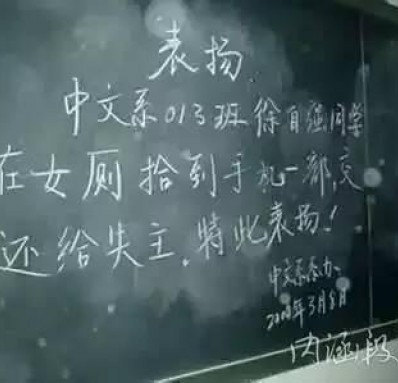 表扬
中文系013班徐自强同学
在女厕拾到手机一部,交
还给失主,特此表扬!
中文系态办
3月8日
内涵段